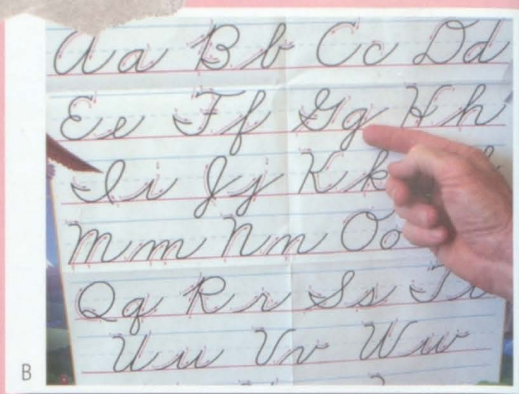 Aa Bb Cc Dd
Ee Ff Gg Hh
Ii Jj Kk
Mm Nn Oo
Qq Rr Ss Tt
Uu Vv Ww
B